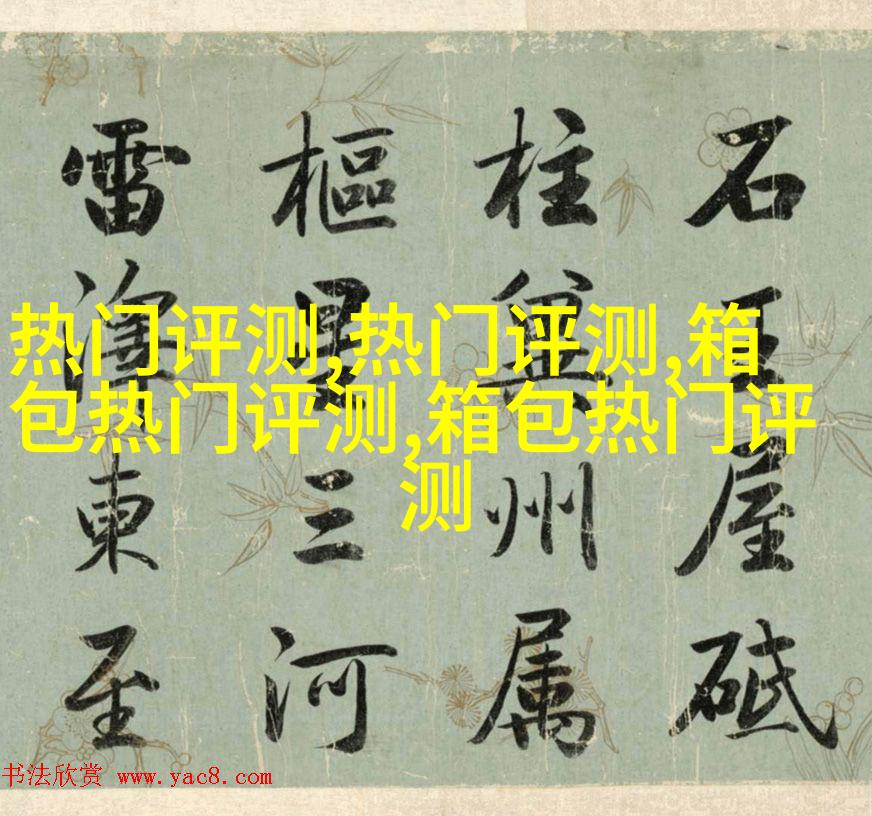 石王屋砥
柱冀州属
樞星三河
雷澤東至
热门评测,热门评测,箱
包热门评测,箱包热门评
测
书法欣赏 www.yac8.com